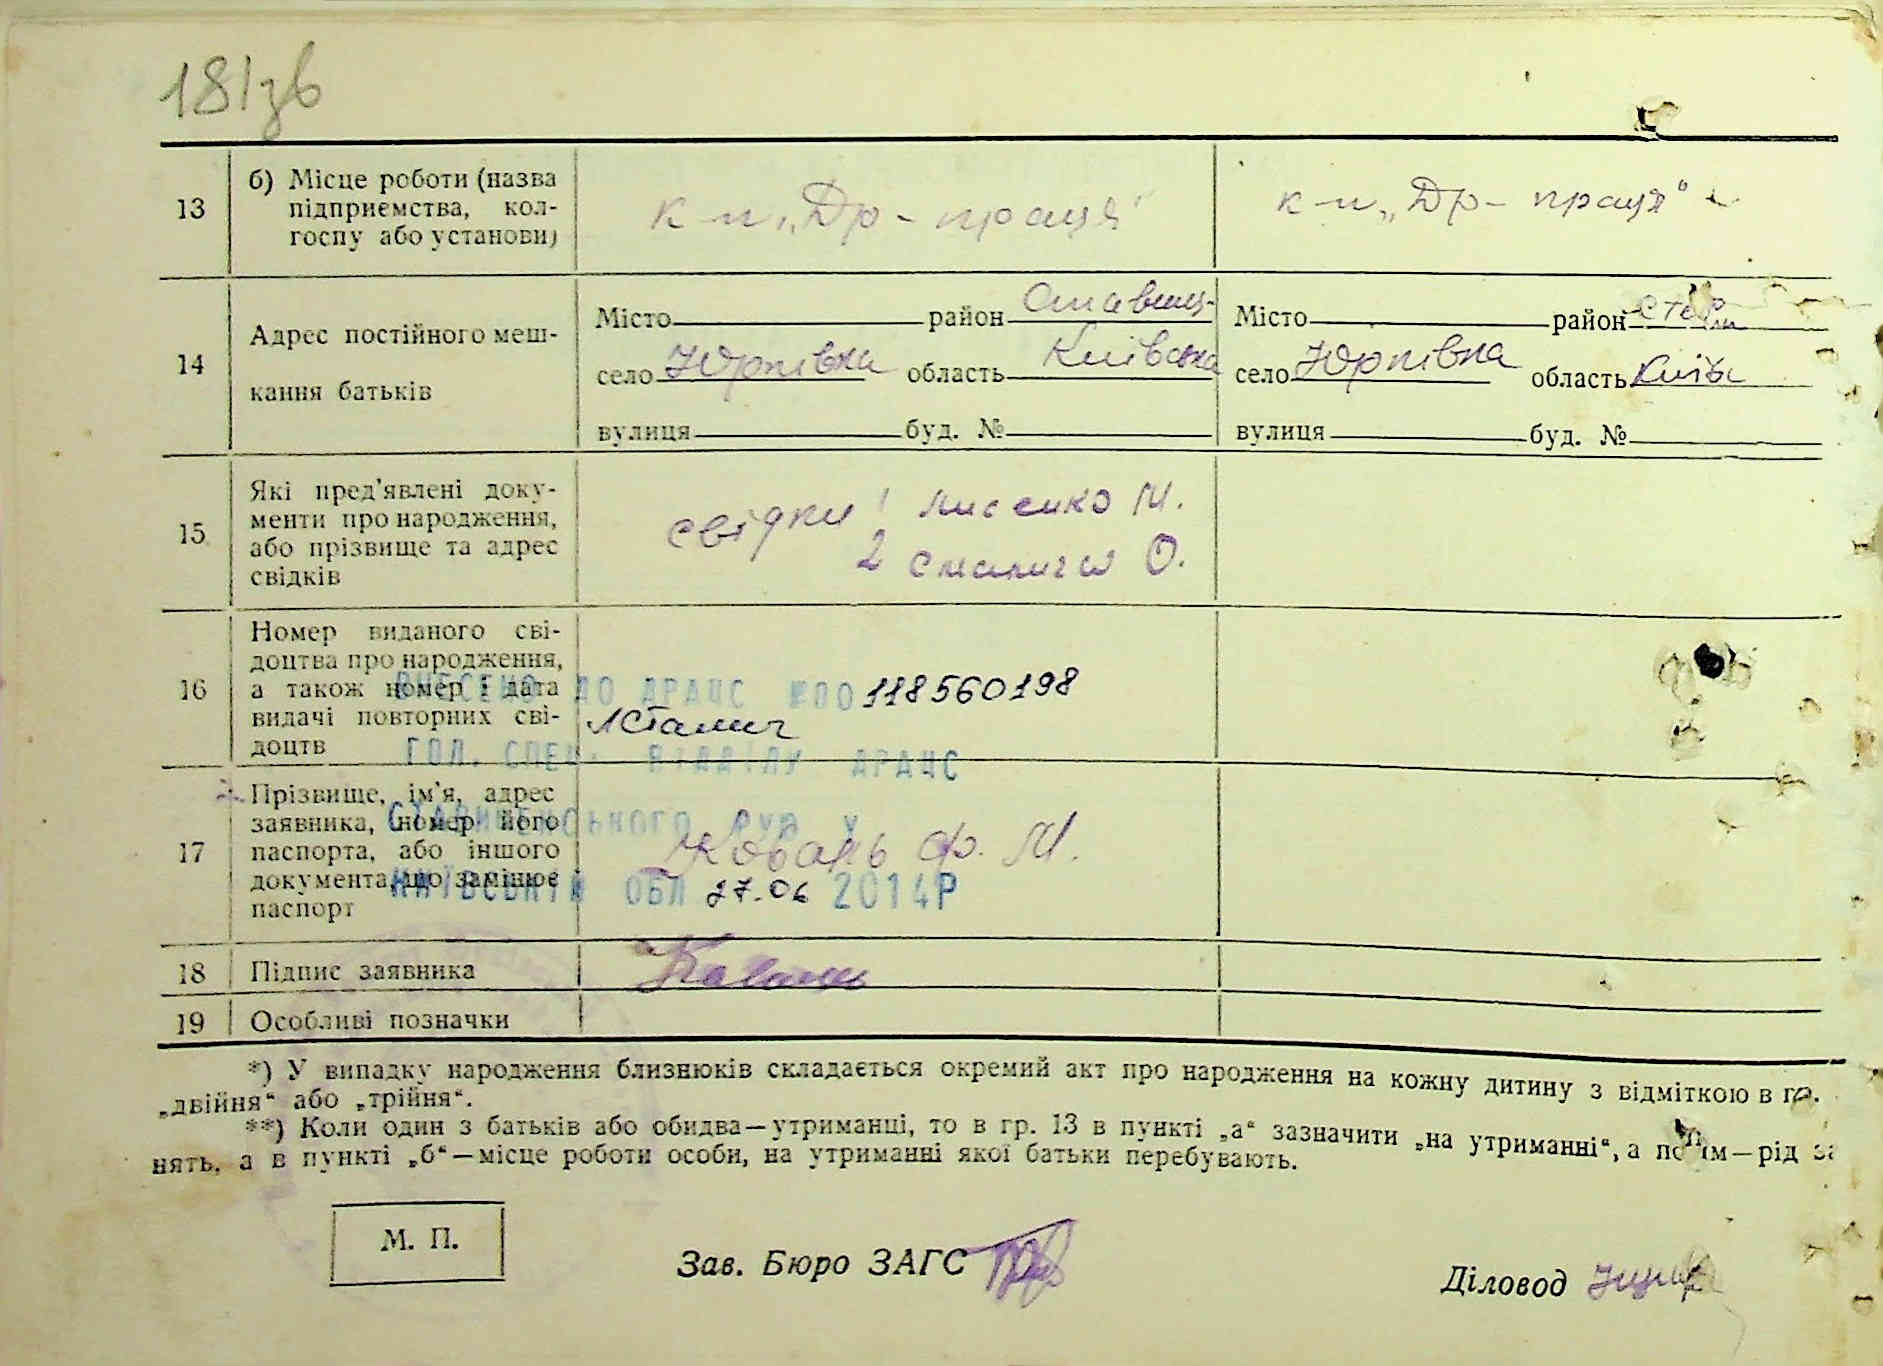 181зв
13
б) Місце роботи (назва
підприємства, кол-
госпу або установи)
к-п „Др-праця"
к-п „Др-праця"
14
Адрес постійного меш-
кання батьків
Місто район Ставищ-
село Юрківка область Київська
вулиця буд. №
Місто район
село Юрківка область Київ
вулиця буд. №
15
Які пред'явлені доку-
менти про народження,
або прізвище та адрес
свідків
свідки 1 Лисенко М.
2 О.
16
Номер виданого сві-
доцтва про народження,
а також номер і дата
видачі повторних сві-
доцтв
ВНЕСЕНО ДО ДРАЦС №00118560198
ГОЛ. СПЕЦ. ВІДДІЛУ ДРАЦС
СТАВИЩЕНСЬКОГО РУЮ У
КИЇВСЬКІЙ ОБЛ 27.06 2014Р
17
Прізвище, ім'я, адрес
заявника, номер його
паспорта, або іншого
документа, що замінює
паспорт
Коваль Ф. М.
18
Підпис заявника
Коваль
19
Особливі позначки
*) У випадку народження близнюків складається окремий акт про народження на кожну дитину з відміткою в гр.
„двійня“ або „трійня“.
**) Коли один з батьків або обидва—утриманці, то в гр. 13 в пункті „а“ зазначити „на утриманні“, а потім—рід за
нять, а в пункті „б“—місце роботи особи, на утриманні якої батьки перебувають.
М. П.
Зав. Бюро ЗАГС
Діловод